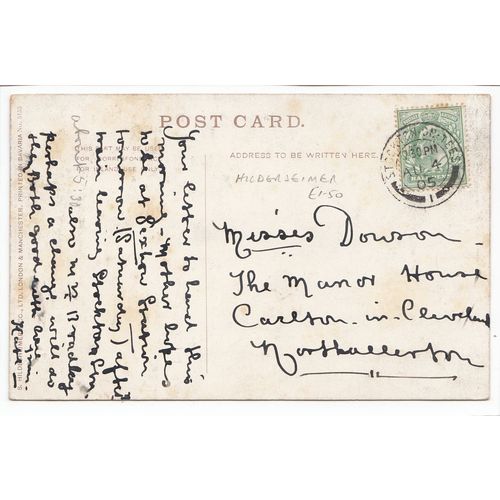 POST CARD.
THIS PART MAY BE USED
FOR CORRESPONDENCE
(FOR INLAND USE ONLY)
ADDRESS TO BE WRITTEN HERE.
HILDERSHEIMER
£1.50
STOCKTON-ON-TEES
AU 4
05
1
Misses Dowson
The Manor House
Carlton-in-Cleveland
Northallerton
Your letter to hand this
morning - Mother hopes
to be at Sexhow Station
tomorrow (Saturday) after
leaving Stockton
about 5:
perhaps a change will do
them both good with love
S. HILDESHEIMER & CO., LTD. LONDON & MANCHESTER. PRINTED IN BAVARIA No.